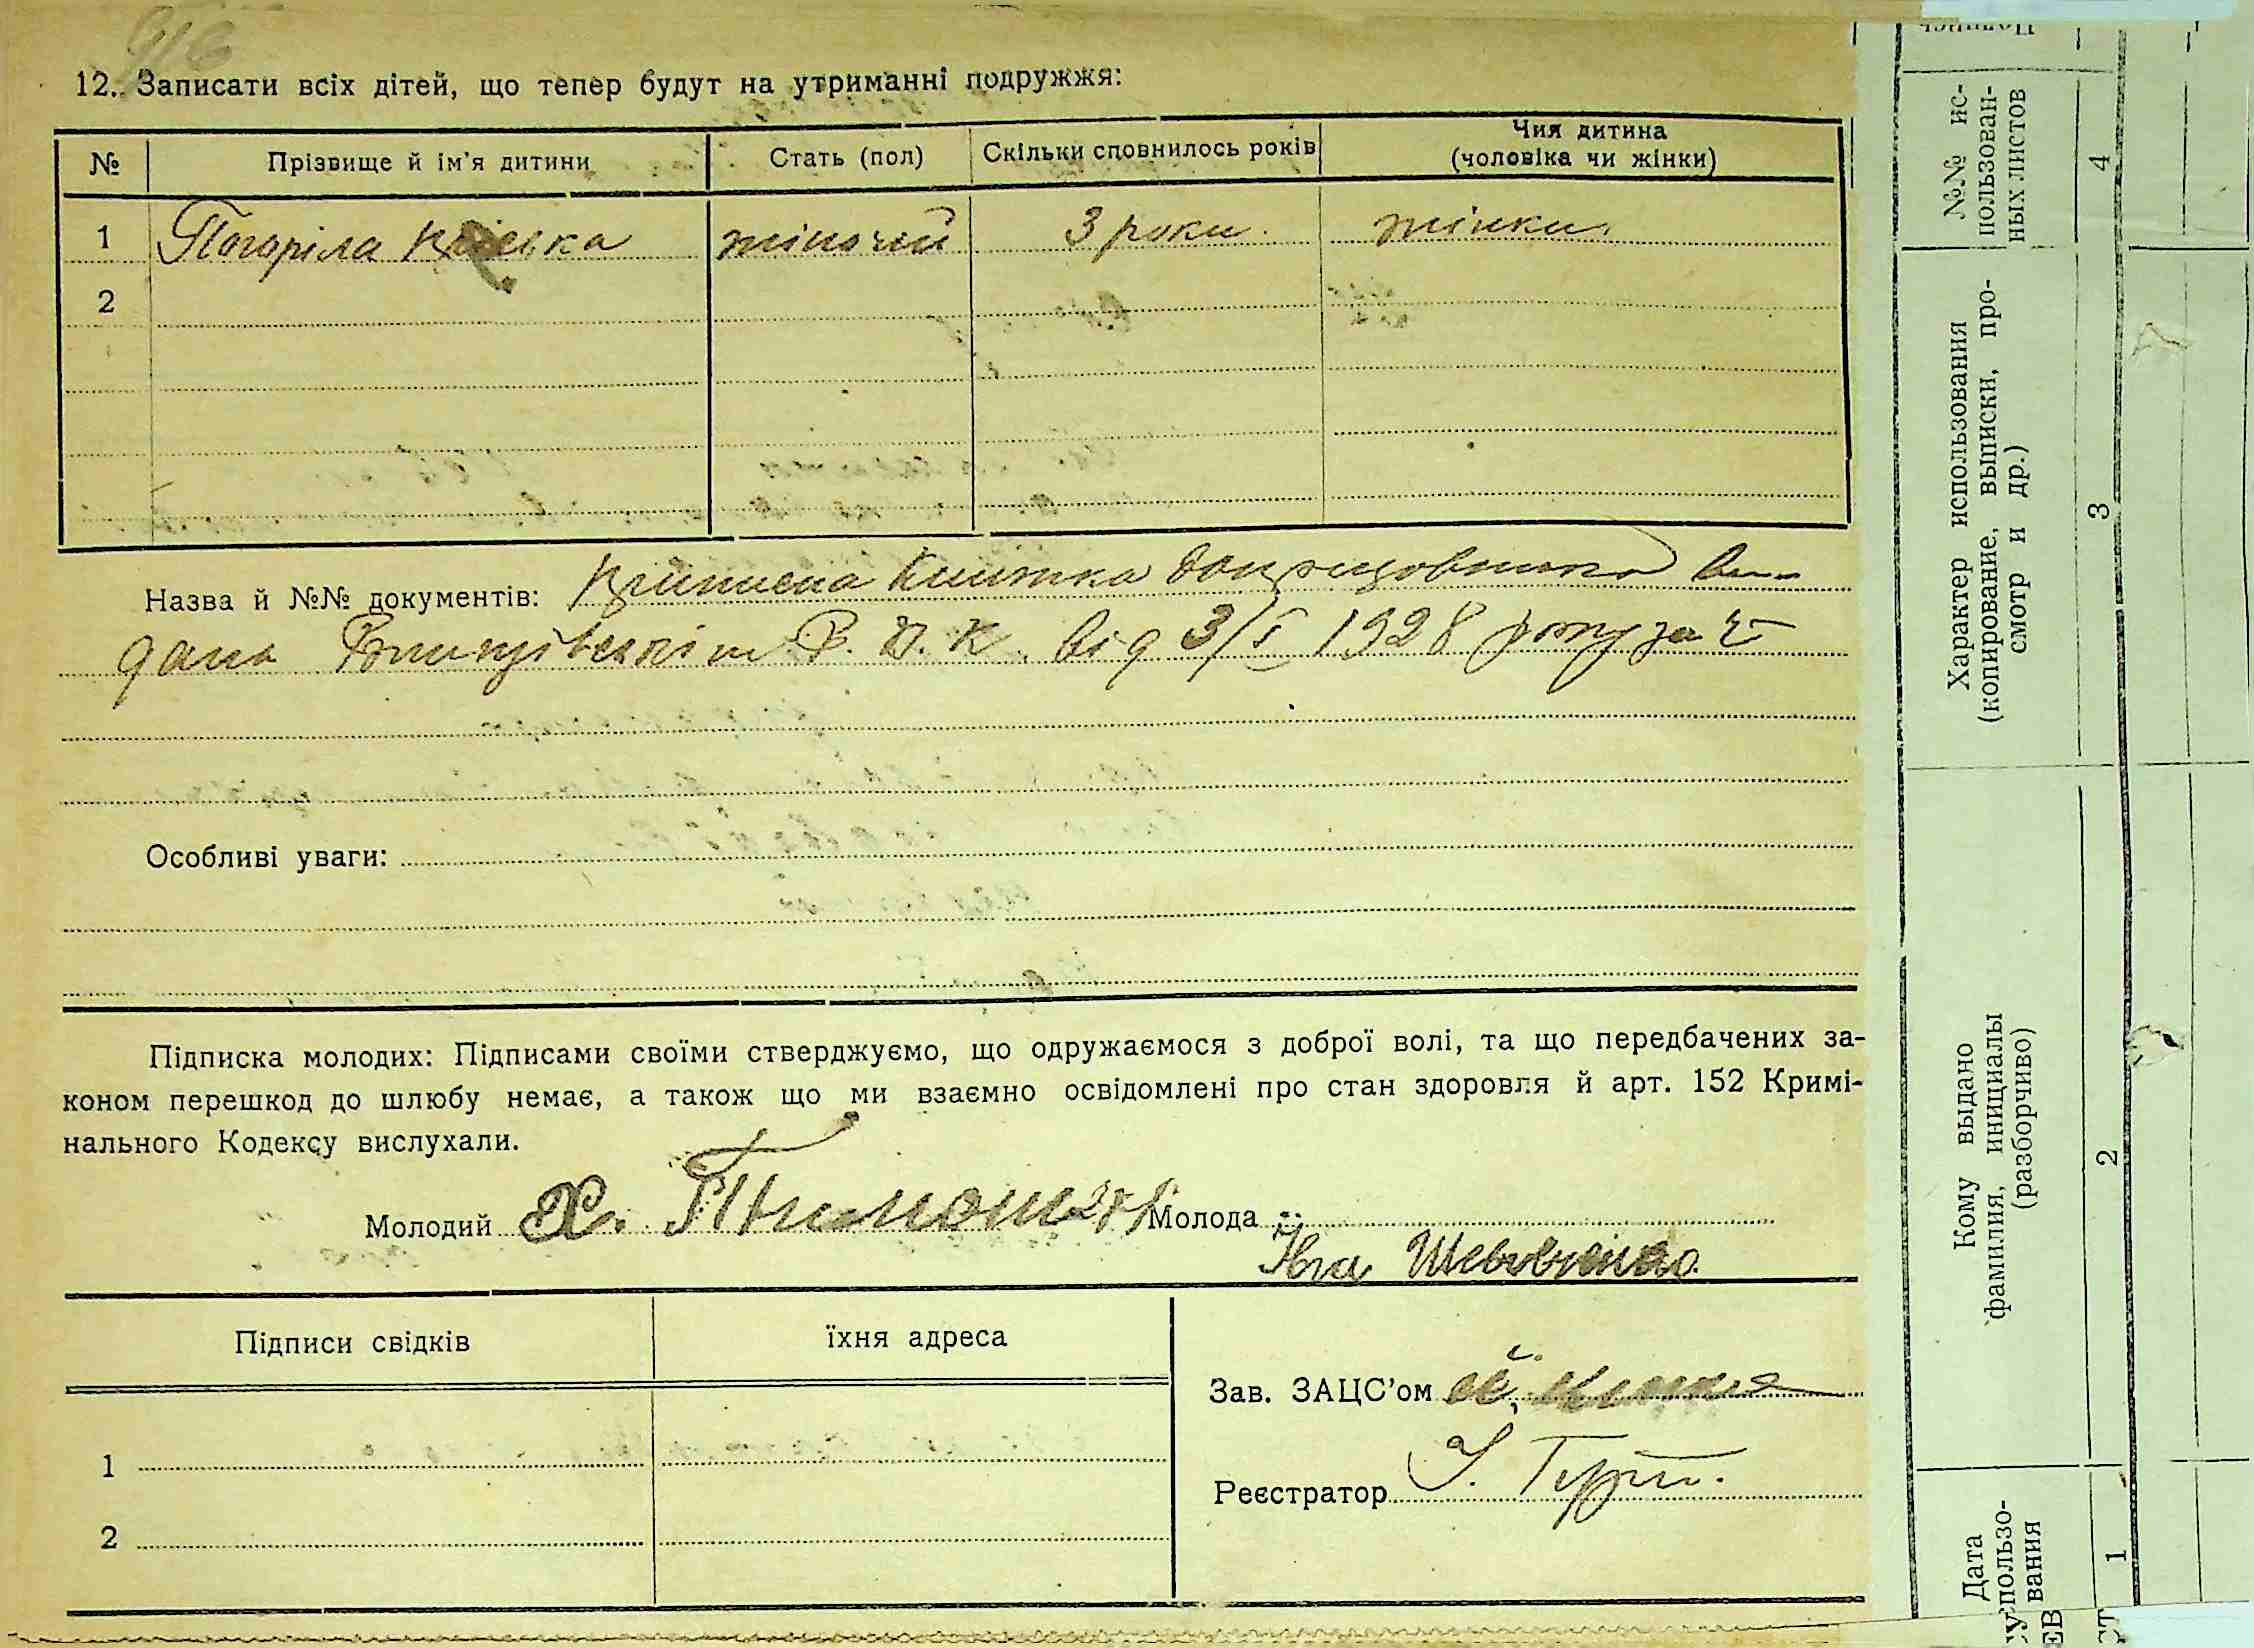 12. Записати всіх дітей, що тепер будут на утриманні подружжя:
№ Прізвище й ім'я дитини Стать (пол) Скільки сповнилось років Чия дитина
(чоловіка чи жінки)
1 Погоріла жіночий 3 роки. жінки.
2
Назва й №№ документів: книжка
дана від 3/I 1928 року за
Особливі уваги:
Підписка молодих: Підписами своїми стверджуємо, що одружаємося з доброї волі, та що передбачених за-
коном перешкод до шлюбу немає, а також що ми взаємно освідомлені про стан здоровля й арт. 152 Кримі-
нального Кодексу вислухали.
Молодий Х. Молода
Шевченко
Підписи свідків їхня адреса
Зав. ЗАЦС'ом
Реєстратор
1
2
№№ ис-
пользован-
ных листов
4
Характер использования
(копирование, выписки, про-
смотр и др.)
3
Кому выдано
фамилия, инициалы
(разборчиво)
2
Дата
использо-
вания
1